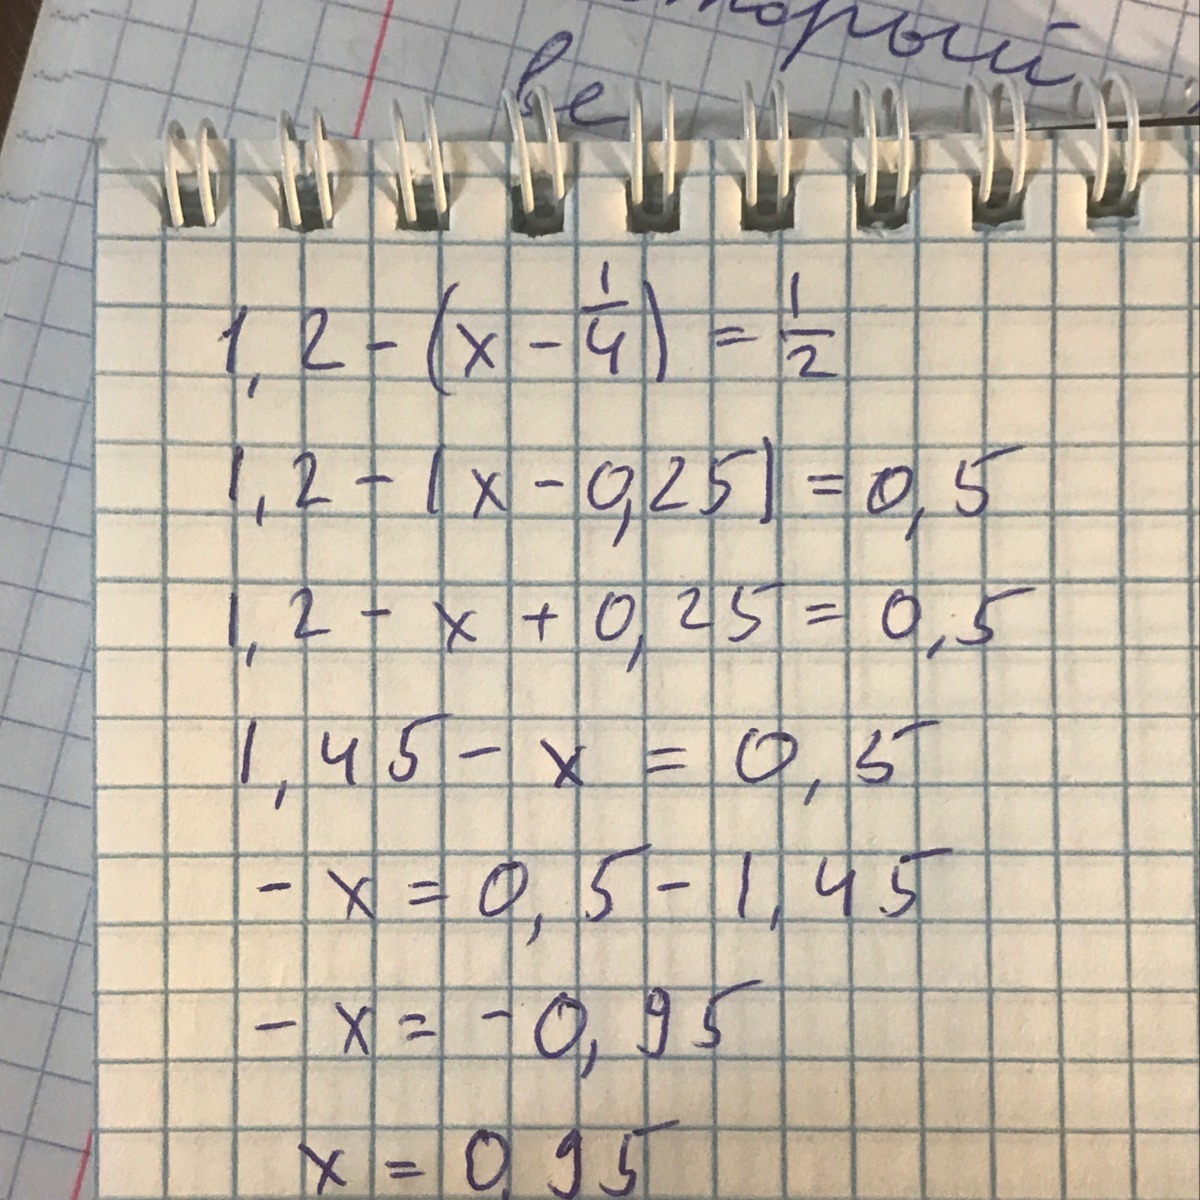 ве
1,2 - (x - 1/4) = 1/2
1,2 - (x - 0,25) = 0,5
1,2 - x + 0,25 = 0,5
1,45 - x = 0,5
- x = 0,5 - 1,45
- x = - 0,95
x = 0,95